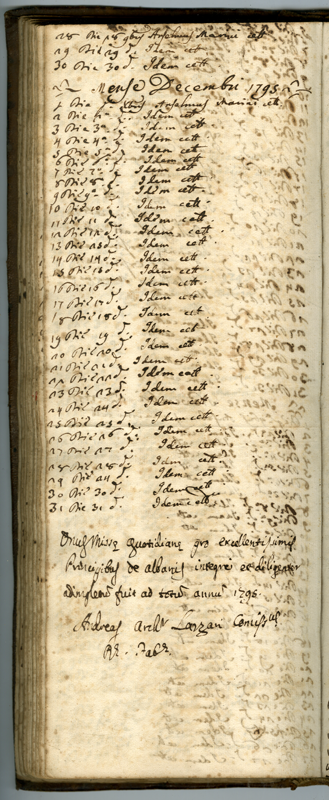 28 Die 28 9bris Anselmus Marini cett
29 Die 29 d. Idem cett
30 Die 30 d. Idem cett
Mense Decembri 1795
1 Die Xbris Anselmus Marini cett
2 Die d. Idem cett
3 Die 3 d. Idem cett
4 Die 4 d. Idem cett
5 Die 5 d. Idem cett
6 Die d. Idem cett
7 Die 7 d. Idem cett
8 Die 8 d. Idem cett
9 Die 9 d. Idem cett
10 Die 10 d. Idem cett
11 Die 11 d. Idem cett
12 Die 12 d. Idem cett
13 Die 13 d. Idem cett
14 Die 14 d. Idem cett
15 Die 15 d. Idem cett
16 Die 16 d. Idem cett
17 Die 17 d. Idem cett
18 Die 18 d. Idem cett
19 Die 19 d. Idem cett
20 Die 20 d. Idem cett
21 Die 21 d. Idem cett
22 Die 22 d. Idem cett
23 Die 23 d. Idem cett
24 Die 24 d. Idem cett
25 Die 25 d. Idem cett
26 Die 26 d. Idem cett
27 Die 27 d. Idem cett
28 Die 28 d. Idem cett
29 Die d. Idem cett
30 Die 30 d. Idem cett
31 Die 31 d. Idem cett
Onus Missę quotidianę pro excellentissimis
Principibus de Albanis integre et diligenter
adimpletum fuit ad totum annum 1795
Andreas Lazzari